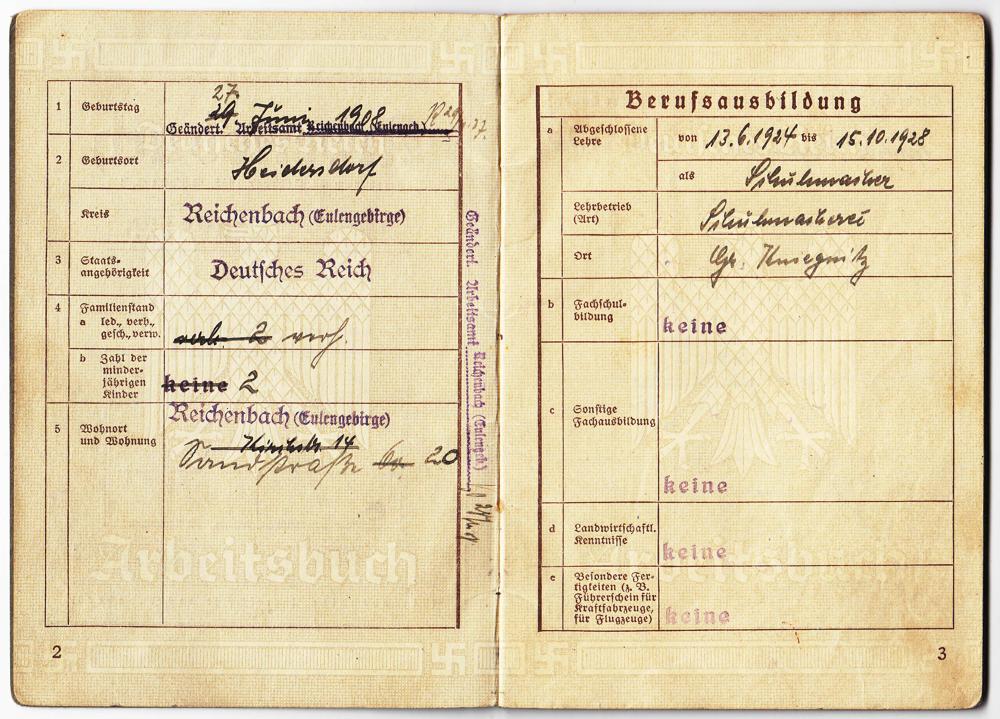 1 Geburtstag
27.
29. Juni 1908
Geändert. Arbeitsamt Reichenbach (Eulengeb)
2 Geburtsort
Heidersdorf
Kreis
Reichenbach (Eulengebirge)
3 Staats-
angehörigkeit
Deutsches Reich
4 Familienstand
a led., verh.,
gesch., verw.
verh. 2 verh.
b Zahl der
minder-
jährigen
Kinder
keine 2
5 Wohnort
und Wohnung
Reichenbach (Eulengebirge)
14
Sandstraße 20
Arbeitsbuch
2
Geändert. Arbeitsamt Reichenbach (Eulengeb)
Berufsausbildung
a Abgeschlossene
Lehre
von 13.6.1924 bis 15.10.1928
als Schuhmacher
Lehrbetrieb
(Art)
Schuhmacherei
Ort
Gr. Kniegnitz
b Fachschul-
bildung
keine
c Sonstige
Fachausbildung
keine
d Landwirtschaftl.
Kenntnisse
keine
e Besondere Fer-
tigkeiten (z. B.
Führerschein für
Kraftfahrzeuge,
für Flugzeuge)
keine
3